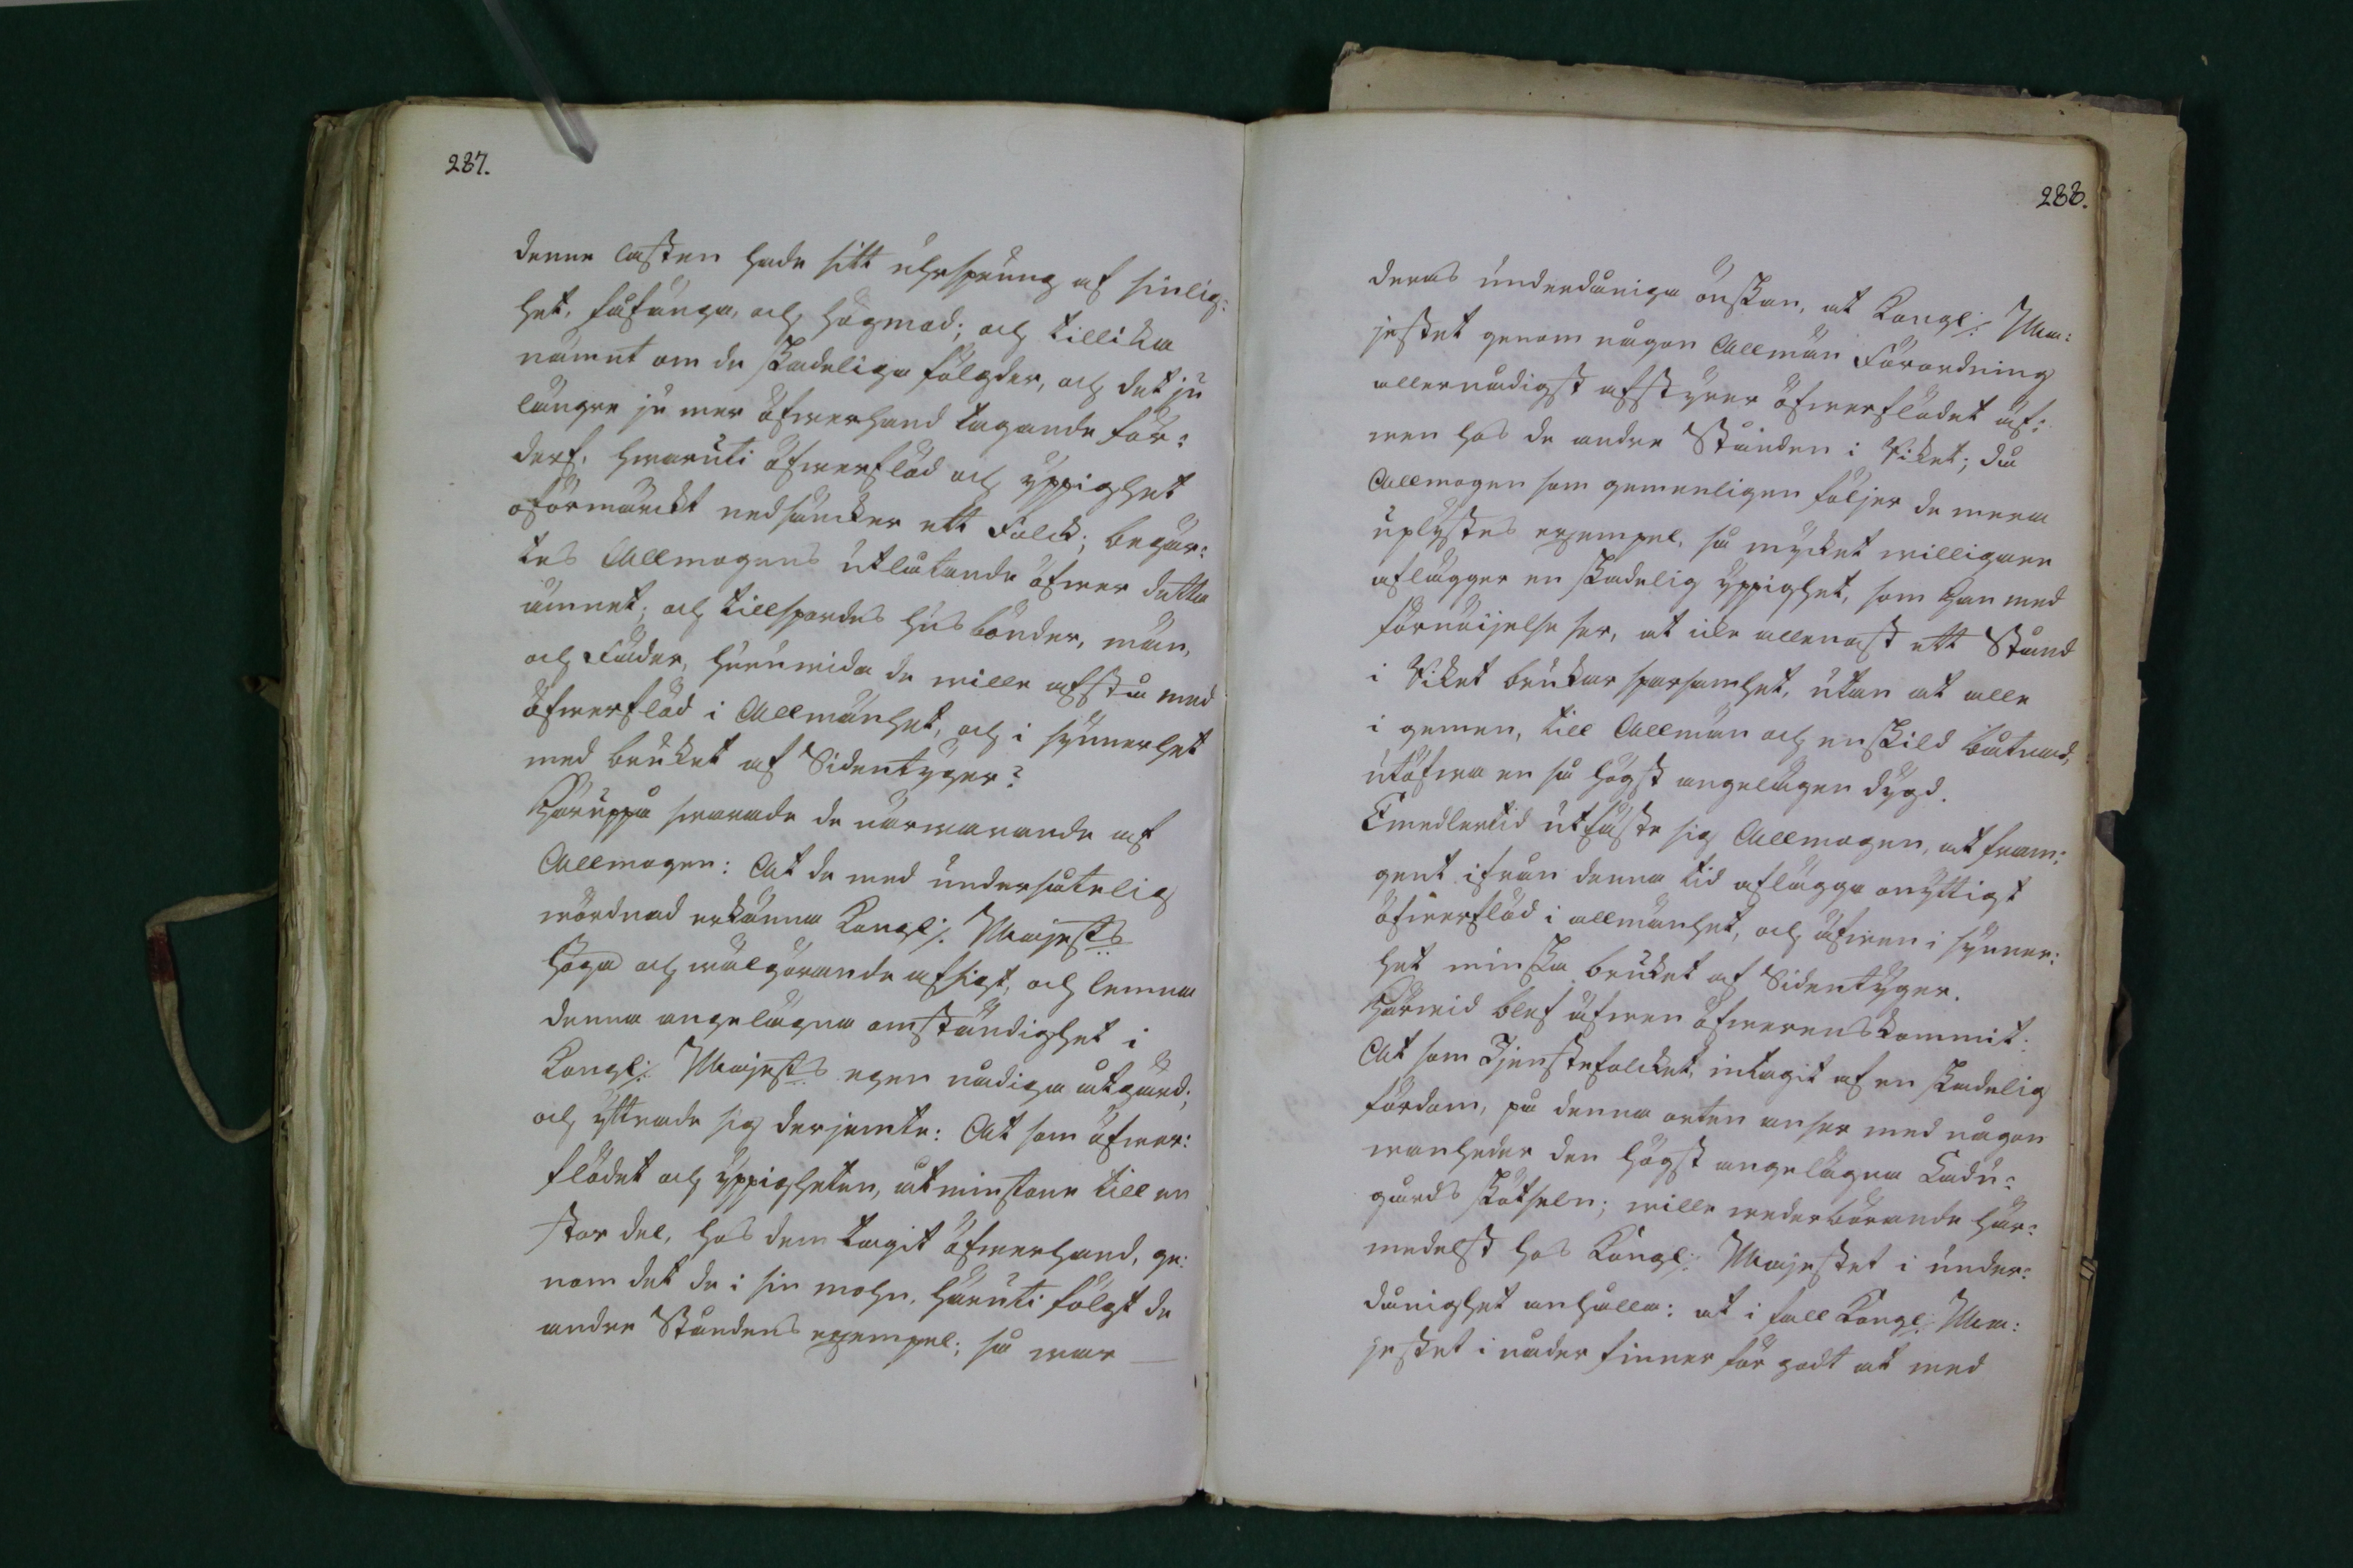 287.
denne lasten hade sitt uhrsprung af sinlig:
het, fåfänga, och högmod; och tillika
nämnt om de skadeliga fölgder, och det ju
längre ju mer öfwerhand tagande för:
derf, hwaruti öfwerflöd och yppighet
oförmärckt nedsäncker ett Folck; begär:
tes Allmogens utlåtande öfwer detta
ämnet; och tillspordes husbönder, män,
och Fäder, huruwida de wille afstå med
öfwerflöd i Allmänhet, och i synnerhet
med bruket af Sidentyger?
Häruppå swarade de närwarande af
Allmogen: At de med undersåtelig
wördnad erkänna Kongl: Majest:s
höga och wälgörande afsigt, och lemna
denna angelägna omständighet i
Kongl: Majest:s egen nådiga åtgärd;
och yttrade sig derjemte: At som öfwer:
flödet och yppigheten, åtminstone till en
stor del, hos dem tagit öfwerhand, ge:
nom det de i sin mohn, häruti följt de
andre Ståndens exempel; så war
288.
deras underdåniga önskan, at Kongl: Ma:
jestet genom någon Allmän Förordning
allernådigst afstyrer öfwerflödet äf:
wen hos de andre Stånden i Riket; då
Allmogen som gemenligen följer de mera
uplystes exempel, så mycket willigare
aflägger en skadelig yppighet, som Han med
förnöijelse ser, at icke allenast ett Stånd
i Riket brukar sparsamhet, utan at alle
i gemen, till Allmän och enskild båtnad,
utöfwa en så högst angelägen dygd.
Emedlertid utfäste sig Allmogen, at fram:
gent ifrån denna tid aflägga onyttigt
öfwerflöd i allmänhet, och äfwen i synner:
het minska bruket af Sidentyger.
Härwid blef äfwen öfwerenskommit:
At som Tjenstefolcket, intagit af en skadelig
fördom, på denna orten anser med någon
wanheder den högst angelägna Ladu:
gårds skötseln; wille wederbörande här:
medelst hos Kongl: Majestet i under:
dånighet anhålla: at i fall Kongl: Ma:
jestet i nåder finner för godt at med